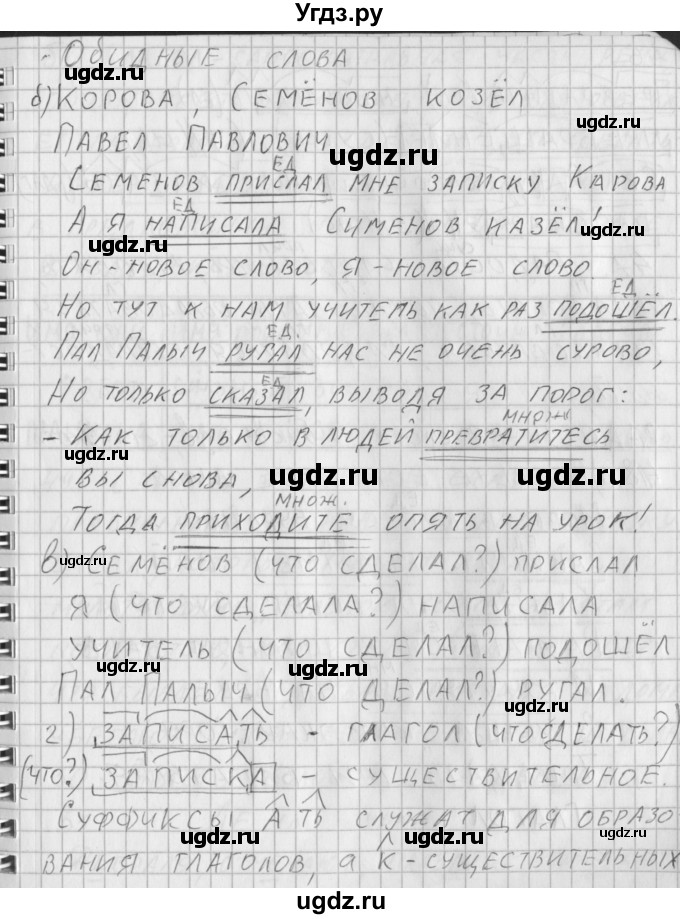 Угдз.ру
- Обидные слова
б) Корова, Семёнов козёл
Павел Павлович
Семенов прислал мне записку Карова
ед
А я написала Сименов казёл!
ед
Он - новое слово, я - новое слово.
Но тут к нам учитель как раз подошёл.
ед.
Пал Палыч ругал нас не очень сурово,
ед.
Но только сказал, выводя за порог:
ед
- Как только в людей превратитесь
множ
вы снова,
Тогда приходите опять на урок!
множ.
в) Семёнов (что сделал?) прислал
Я (что сделала?) написала
Учитель (что сделал?) подошёл
Пал Палыч (что делал?) ругал.
г) записать - глагол (что сделать?)
(что?) записка - существительное.
Суффиксы а ть служат для образо
вания глаголов, а к - существительных
ugdz.ru